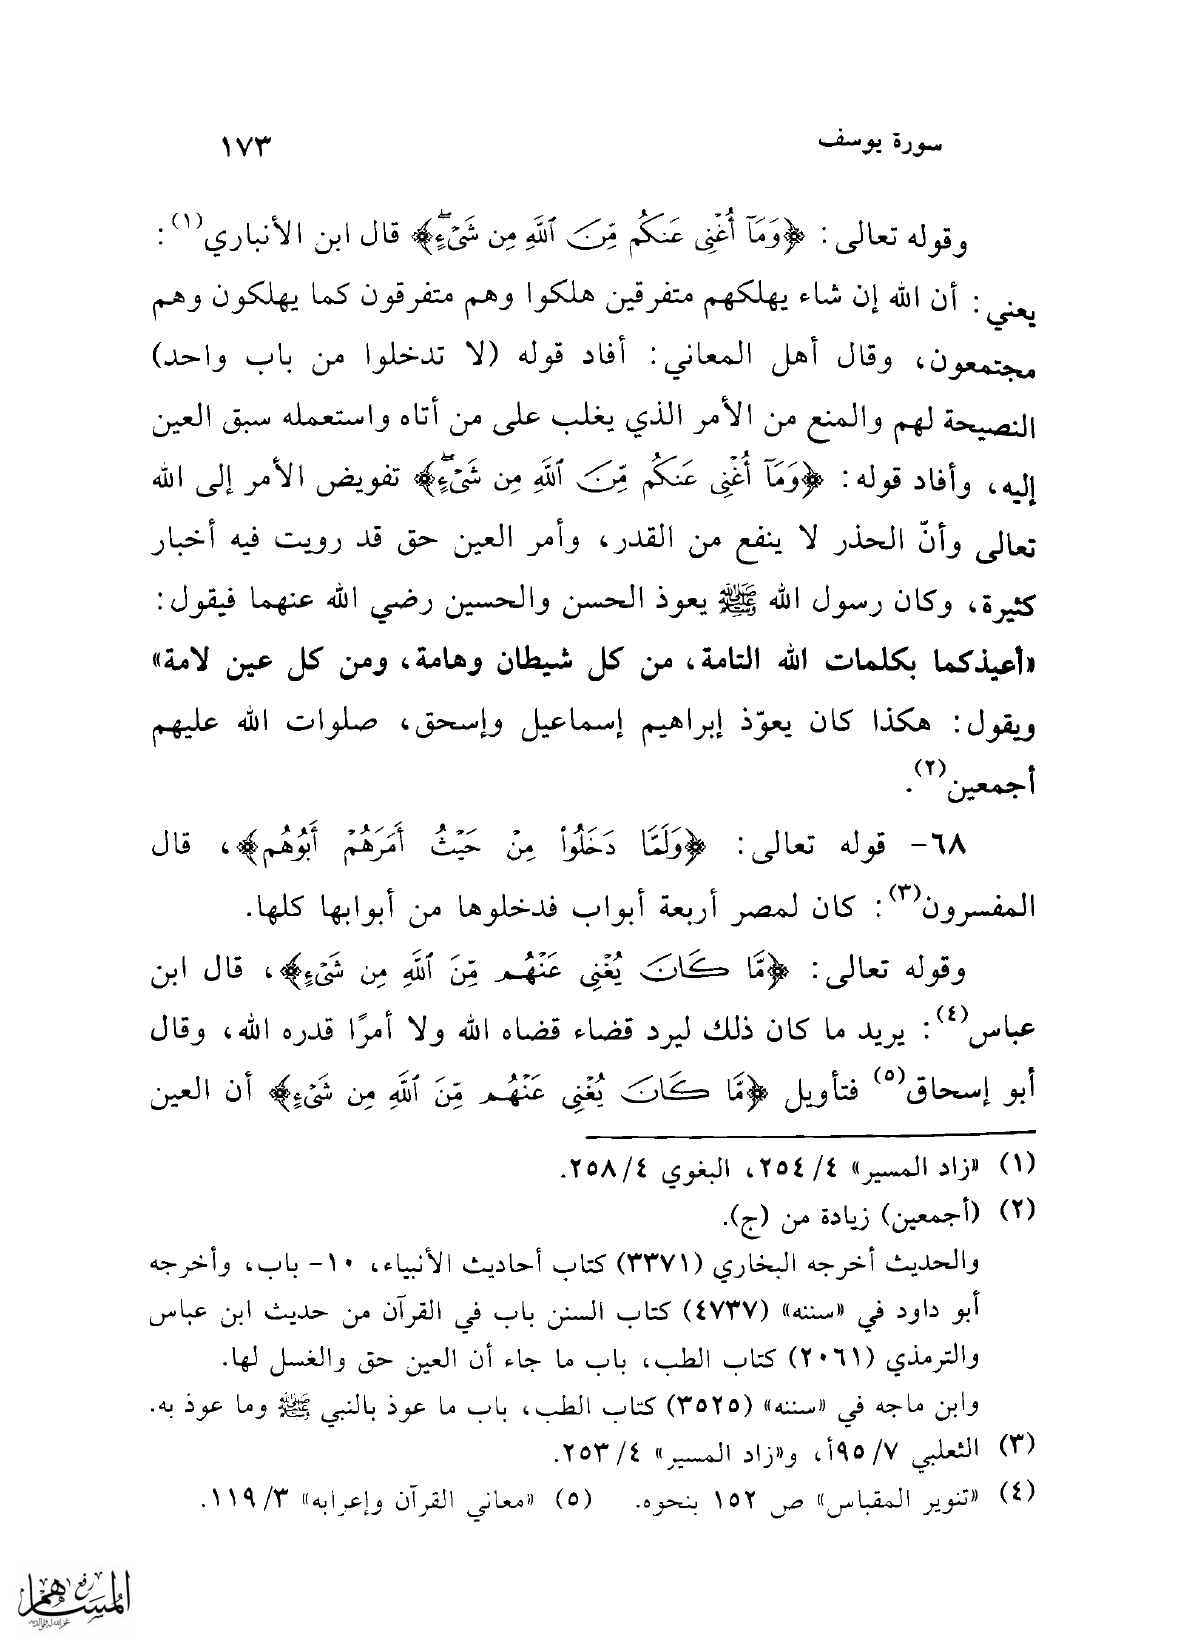 سورة يوسف ١٧٣
وقوله تعالى: ﴿وَمَآ أُغْنِى عَنكُم مِّنَ ٱللَّهِ مِن شَىْءٍۖ﴾ قال ابن الأنباري(١):
يعني: أن الله إن شاء يهلكهم متفرقين هلكوا وهم متفرقون كما يهلكون وهم
مجتمعون، وقال أهل المعاني: أفاد قوله (لا تدخلوا من باب واحد)
النصيحة لهم والمنع من الأمر الذي يغلب على من أتاه واستعمله سبق العين
إليه، وأفاد قوله: ﴿وَمَآ أُغْنِى عَنكُم مِّنَ ٱللَّهِ مِن شَىْءٍۖ﴾ تفويض الأمر إلى الله
تعالى وأنّ الحذر لا ينفع من القدر، وأمر العين حق قد رويت فيه أخبار
كثيرة، وكان رسول الله ﷺ يعوذ الحسن والحسين رضي الله عنهما فيقول:
«أعيذكما بكلمات الله التامة، من كل شيطان وهامة، ومن كل عين لامة»
ويقول: هكذا كان يعوّذ إبراهيم إسماعيل وإسحق، صلوات الله عليهم
أجمعين(٢).
٦٨- قوله تعالى: ﴿وَلَمَّا دَخَلُوا۟ مِنْ حَيْثُ أَمَرَهُمْ أَبُوهُم﴾، قال
المفسرون(٣): كان لمصر أربعة أبواب فدخلوها من أبوابها كلها.
وقوله تعالى: ﴿مَّا كَانَ يُغْنِى عَنْهُم مِّنَ ٱللَّهِ مِن شَىْءٍ﴾، قال ابن
عباس(٤): يريد ما كان ذلك ليرد قضاء قضاه الله ولا أمرًا قدره الله، وقال
أبو إسحاق(٥) فتأويل ﴿مَّا كَانَ يُغْنِى عَنْهُم مِّنَ ٱللَّهِ مِن شَىْءٍ﴾ أن العين
(١) «زاد المسير» ٤/ ٢٥٤، البغوي ٤/ ٢٥٨.
(٢) (أجمعين) زيادة من (ج).
والحديث أخرجه البخاري (٣٣٧١) كتاب أحاديث الأنبياء، ١٠- باب، وأخرجه
أبو داود في «سننه» (٤٧٣٧) كتاب السنن باب في القرآن من حديث ابن عباس
والترمذي (٢٠٦١) كتاب الطب، باب ما جاء أن العين حق والغسل لها.
وابن ماجه في «سننه» (٣٥٢٥) كتاب الطب، باب ما عوذ بالنبي ﷺ وما عوذ به.
(٣) الثعلبي ٧/ ٩٥أ، و«زاد المسير» ٤/ ٢٥٣.
(٤) «تنوير المقباس» ص ١٥٢ بنحوه. (٥) «معاني القرآن وإعرابه» ٣/ ١١٩.